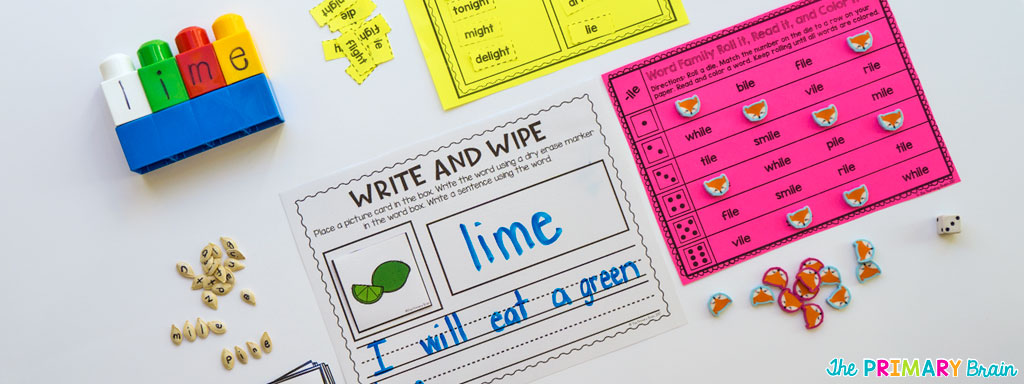 lime
die
flight
tonight
might
delight
lie
Word Family Roll it, Read it, and Color
Directions: Roll a die. Match the number on the die to a row on your
paper. Read and color a word. Keep rolling until all words are colored.
-ile
bile file
while vile rile
tile smile mile
while pile
file smile rile tile
vile while
WRITE AND WIPE
Place a picture card in the box. Write the word using a dry erase marker
in the word box. Write a sentence using the word.
lime
I will eat a green
mile
pine
The PRIMARY Brain